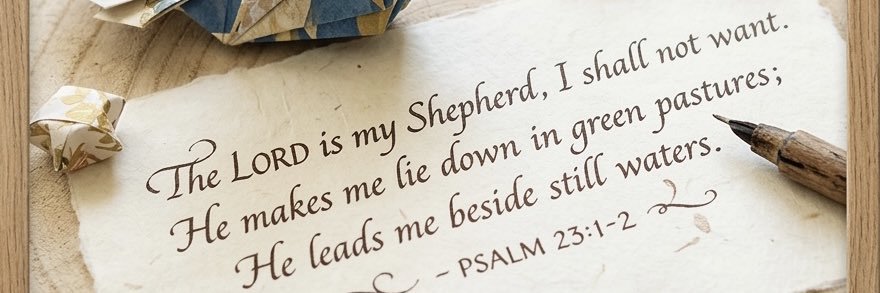 The LORD is my Shepherd, I shall not want.
He makes me lie down in green pastures;
He leads me beside still waters.
~ PSALM 23:1-2